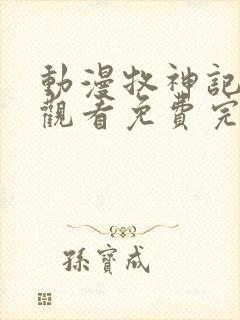 動漫牧神記
觀看免費完
孫寶成